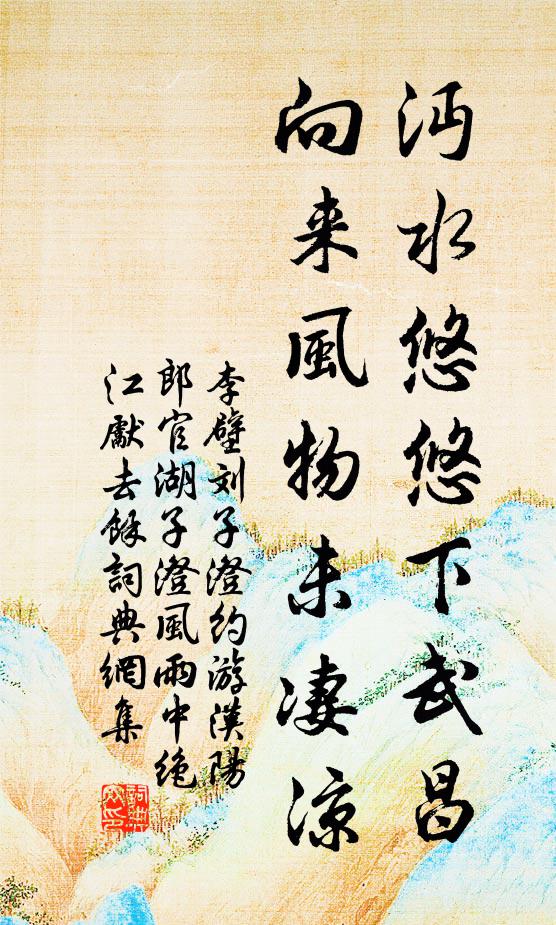 沔水悠悠下武昌
向来風物未淒涼
李壁刘子澄约游漢陽
郎官湖子澄風雨中绝
江獻去餘詞典網集